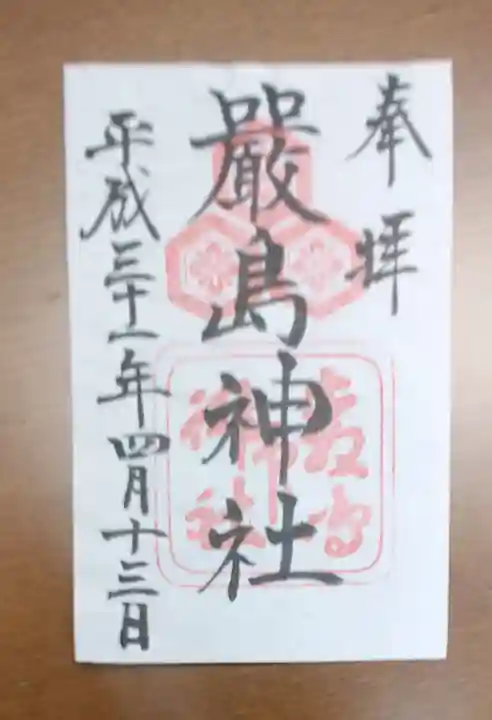 奉拝
嚴島神社
平成三十一年四月十三日